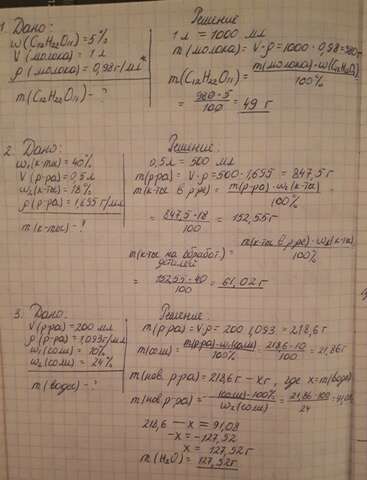 1. Дано:
w(C12H22O11) = 5%
V(молока) = 1 л
ρ(молока) = 0,98 г/мл
m(C12H22O11) - ?
Решение
1 л = 1000 мл
m(молока) = V·ρ = 1000·0,98 = 980 г
m(C12H22O11) = m(молока)·w(C12H22O11) / 100%
= 980·5 / 100 = 49 г
2. Дано:
w1(к-ты) = 40%
V(р-ра) = 0,5 л
w2(к-ты) = 18%
ρ(р-ра) = 1,695 г/мл
m(к-ты) - ?
Решение:
0,5 л = 500 мл
m(р-ра) = V·ρ = 500·1,695 = 847,5 г
m(к-ты в р-ре) = m(р-ра)·w2(к-ты) / 100%
= 847,5·18 / 100 = 152,55 г
m(к-ты на обработ. деталей) = m(к-ты в р-ре)·w1(к-ты) / 100%
= 152,55·40 / 100 = 61,02 г
3. Дано:
V(р-ра) = 200 мл
ρ(р-ра) = 1,093 г/мл
w1(соли) = 10%
w2(соли) = 24%
m(воды) - ?
Решение:
m(р-ра) = V·ρ = 200·1,093 = 218,6 г
m(соли) = m(р-ра)·w1(соли) / 100% = 218,6·10 / 100 = 21,86 г
m(нов. р-ра) = 218,6 г - x г, где x = m(воды)
m(нов. р-ра) = m(соли)·100% / w2(соли) = 21,86·100 / 24 = 91,08
218,6 - x = 91,08
-x = -127,52
x = 127,52 г
m(H2O) = 127,52 г